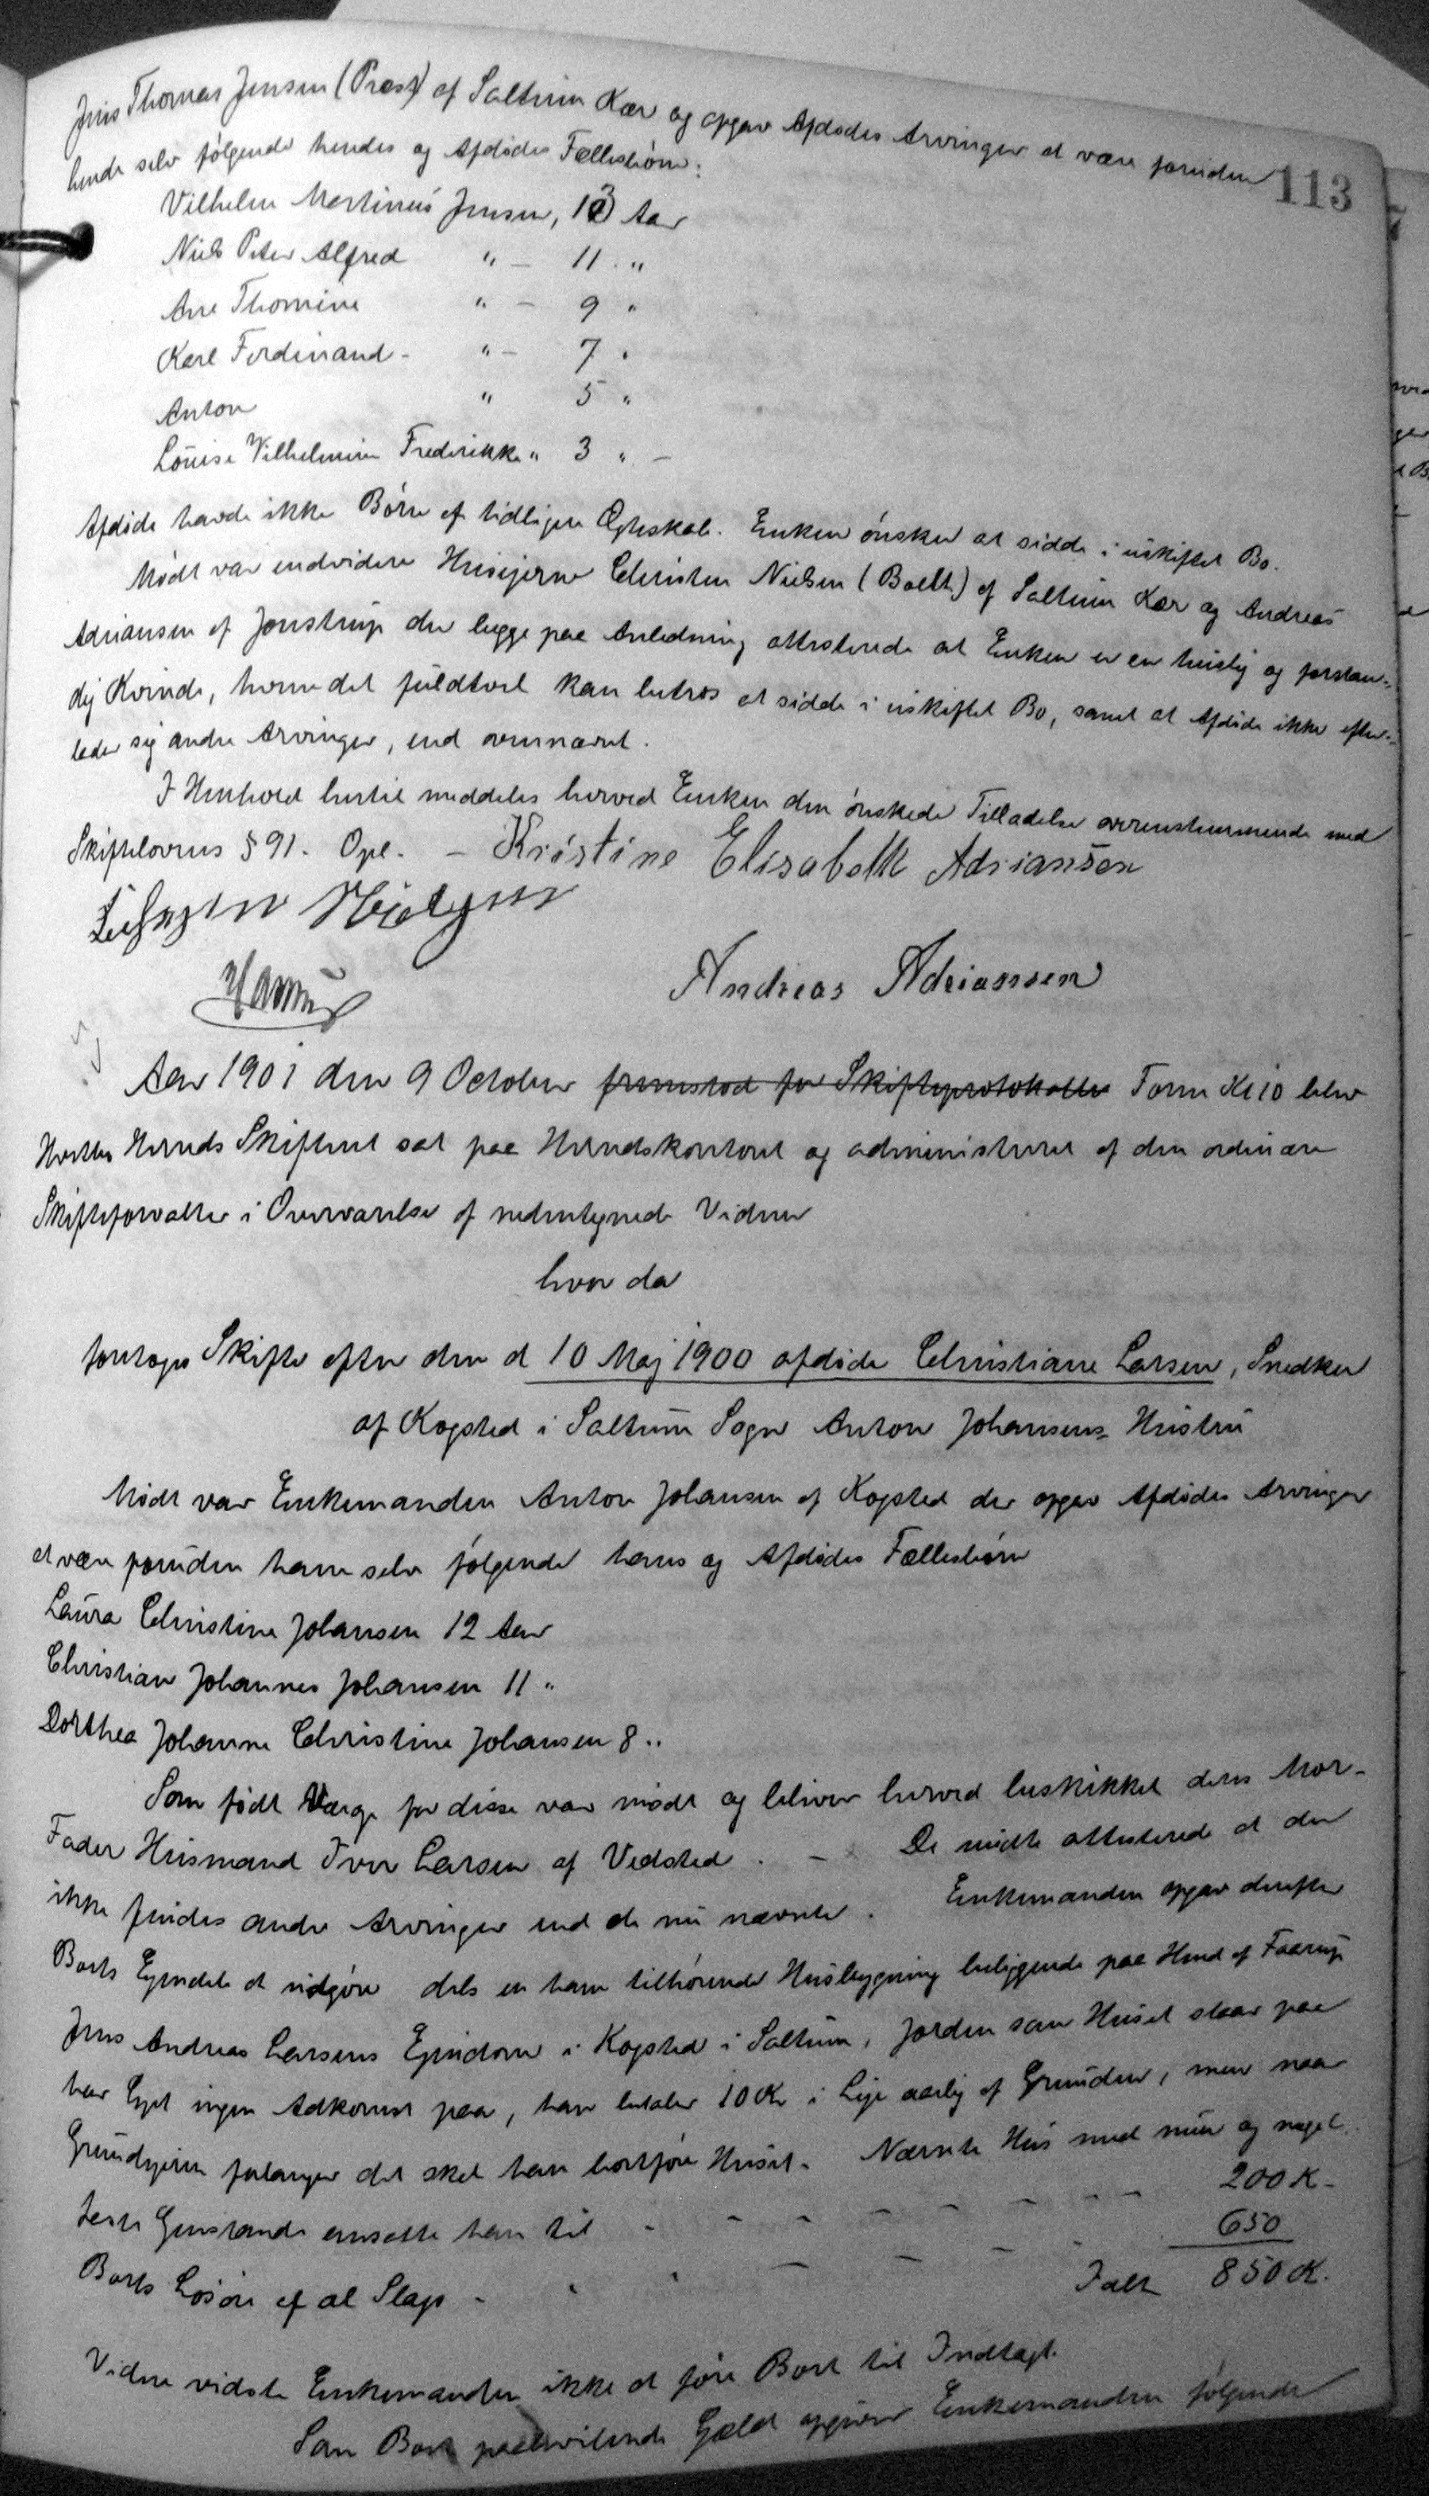 113
Jens Thomas Jensen (Præst) af Saltum Kær og opgav Afdødes Arvinger at være foruden
hende selv følgende hendes og Afdødes Fællesbørn:
Vilhelm Martinus Jensen, 13 Aar
Niels Peter Alfred " - 11 "
Ane Thomine " - 9 "
Karl Ferdinand - " - 7 "
Anton " 5 "
Louise Vilhelmine Frederikke " 3 " -
Afdøde havde ikke Børn af tidligere Ægteskab. Enken ønsker at sidde i uskiftet Bo.
Mødt var endvidere Husejerne Christen Nielsen (Boelt) af Saltum Kær og Andreas
Adriansen af Jonstrup der begge paa Anledning attesterede at Enken er en huslig og forstan-
dig Kvinde, hvem det fuldtvel kan betros at sidde i uskiftet Bo, samt at Afdøde ikke efter-
lader sig andre Arvinger, end ovennævnt.
I Henhold hertil meddeles herved Enken den ønskede Tilladelse overensstemmende med
Skiftelovens § 91. Opl. - Kristine Elisabeth Adriansen
Andreas Adriansen
Aar 1901 den 9 October fremstod for Skifteprotokollen Form Kl 10 blev
Hvetbo Herreds Skifteret sat paa Herredskontoret og administreret af den ordinære
Skifteforvalter i Overværelse af undertegnede Vidner
hvor da
foretoges Skifte efter den d 10 Maj 1900 afdøde Christiane Larsen, Snedker
af Kogsted i Saltum Sogn Anton Johansens Hustru
Mødt var Enkemanden Anton Johansen af Kogsted der opgav Afdødes Arvinger
at være foruden ham selv følgende hans og Afdødes Fællesbørn
Laura Christine Johansen 12 Aar
Christian Johannes Johansen 11 "
Dorthea Johanne Christine Johansen 8 "
Som født Værge for disse var mødt og bliver herved beskikket deres Mor-
Fader Husmand Iver Larsen af Vedsted. - De mødte attesterede at der
ikke findes andre Arvinger end de nu nævnte. Enkemanden opgav derefter
Boets Ejendele at udgøre dels en ham tilhørende Husbygning beliggende paa Hmd af Faarup
Jens Andreas Larsens Ejendom i Kogsted i Saltum, Jorden som Huset staar paa
har Lejet ingen Adkomst paa, han betaler 10 Kr i Leje aarlig af Grunden, men naar
Grundejeren forlanger det skal han bortføre Huset. Nævnte Hus med mur og nagel
faste Genstande ansatte han til - - - - - - - 200 K.
Boets Løsøre af al Slags - - - - - - 650
Ialt 850 K.
Videre vidste Enkemanden ikke at føre Boet til Indtægt.
Som Boet paahvilende Gæld opgiver Enkemanden følgende